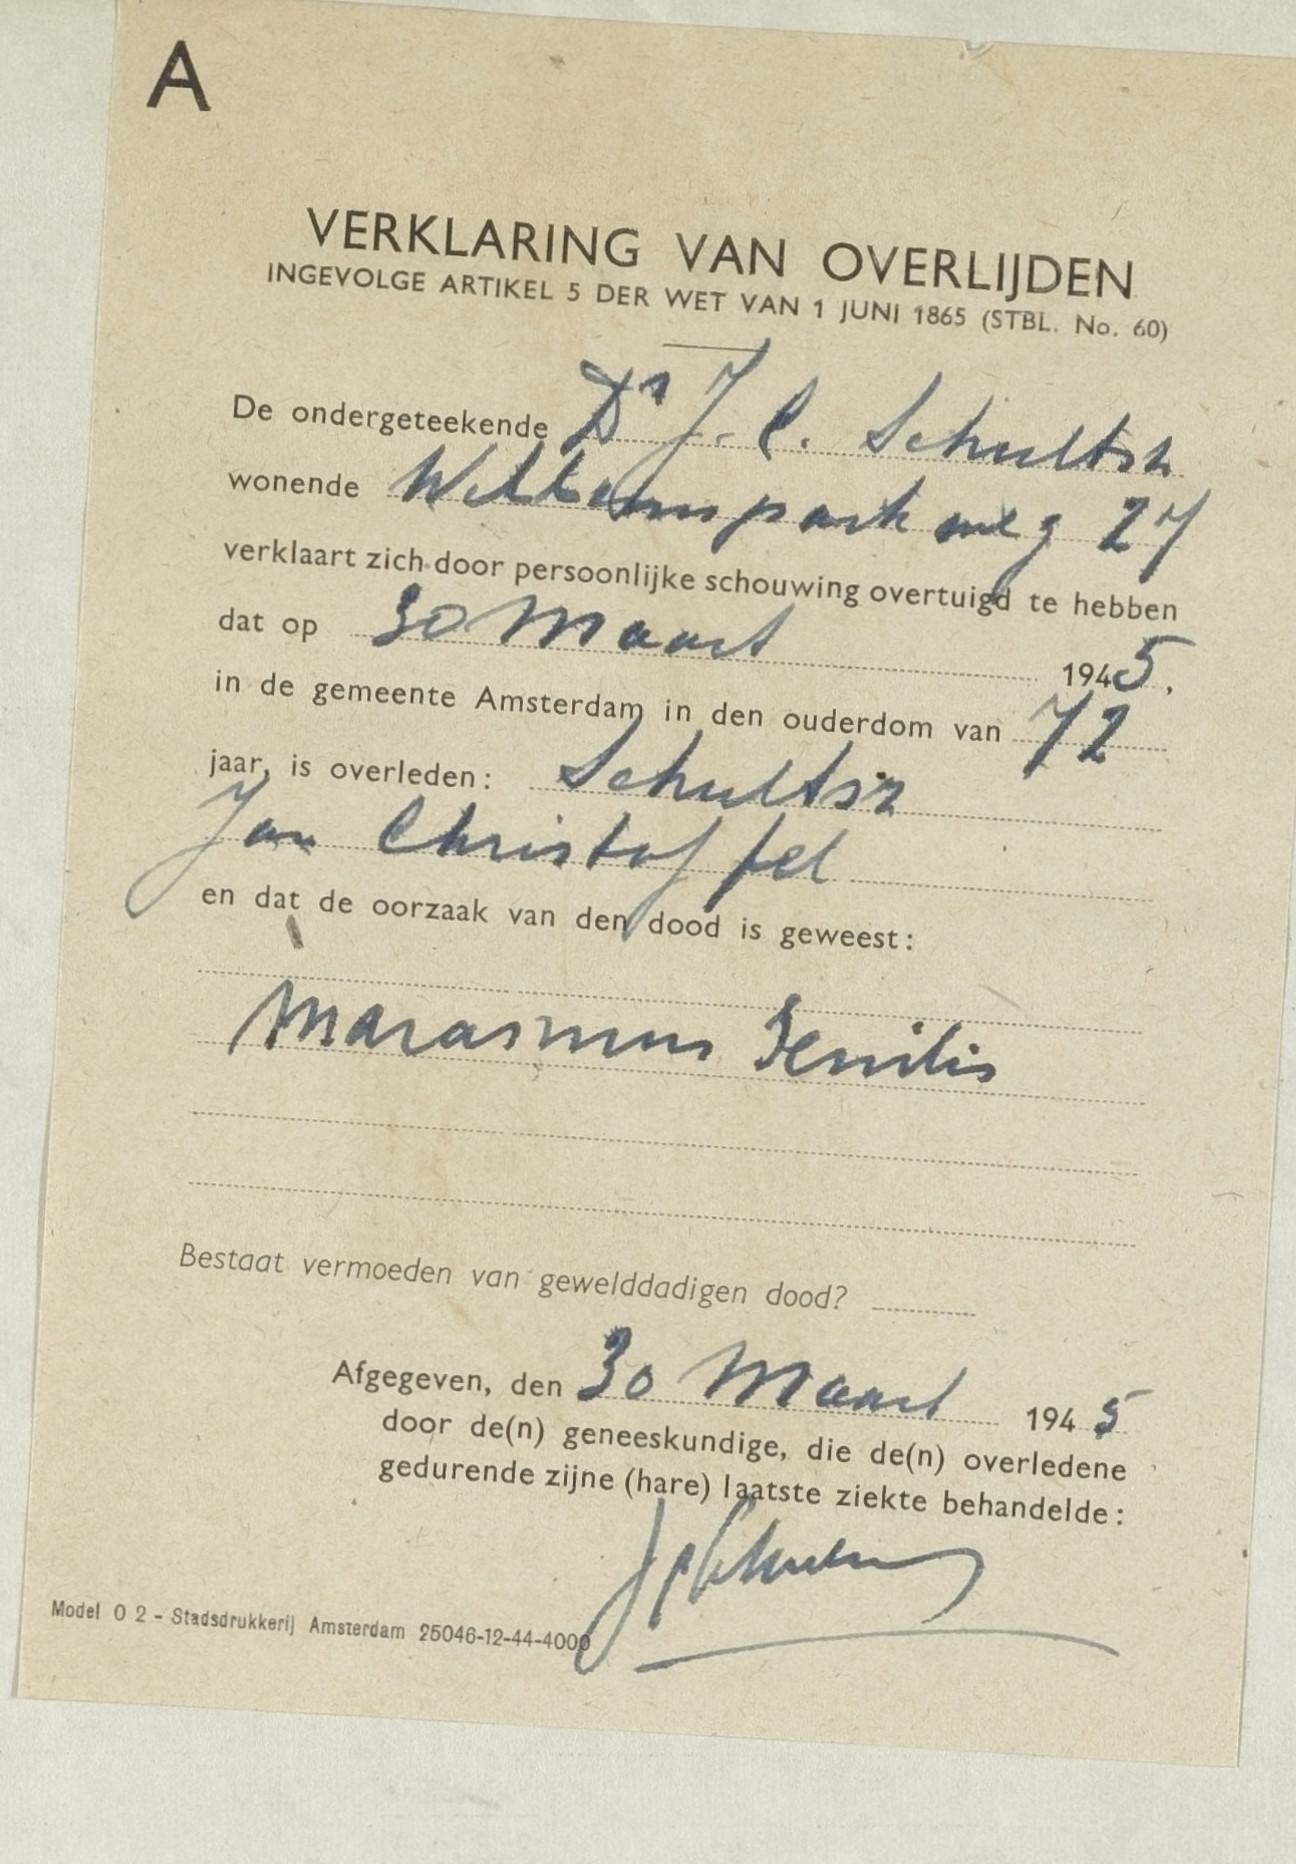 A
VERKLARING VAN OVERLIJDEN
INGEVOLGE ARTIKEL 5 DER WET VAN 1 JUNI 1865 (STBL. No. 60)
De ondergeteekende Dr J. C. Schultsz
wonende parkweg 27
verklaart zich door persoonlijke schouwing overtuigd te hebben
dat op 30 Maart 1945,
in de gemeente Amsterdam in den ouderdom van 72
jaar, is overleden: Schultsz
Jan Christoffel
en dat de oorzaak van den dood is geweest:
Marasmus Senilis
Bestaat vermoeden van gewelddadigen dood?
Afgegeven, den 30 Maart 1945
door de(n) geneeskundige, die de(n) overledene
gedurende zijne (hare) laatste ziekte behandelde:
Model O 2 - Stadsdrukkerij Amsterdam 25046-12-44-4000